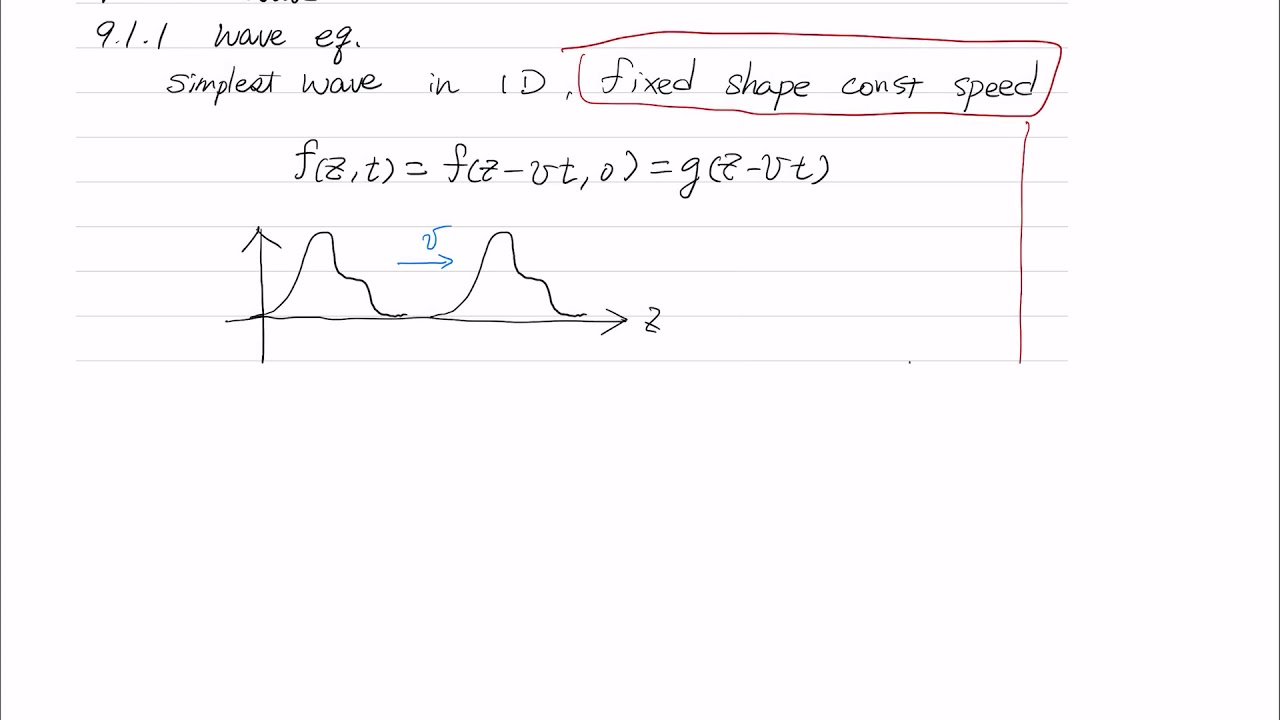 9.1.1 wave eq.
simplest wave in 1D, fixed shape const speed
f(z,t) = f(z-vt, 0) = g(z-vt)
v
z